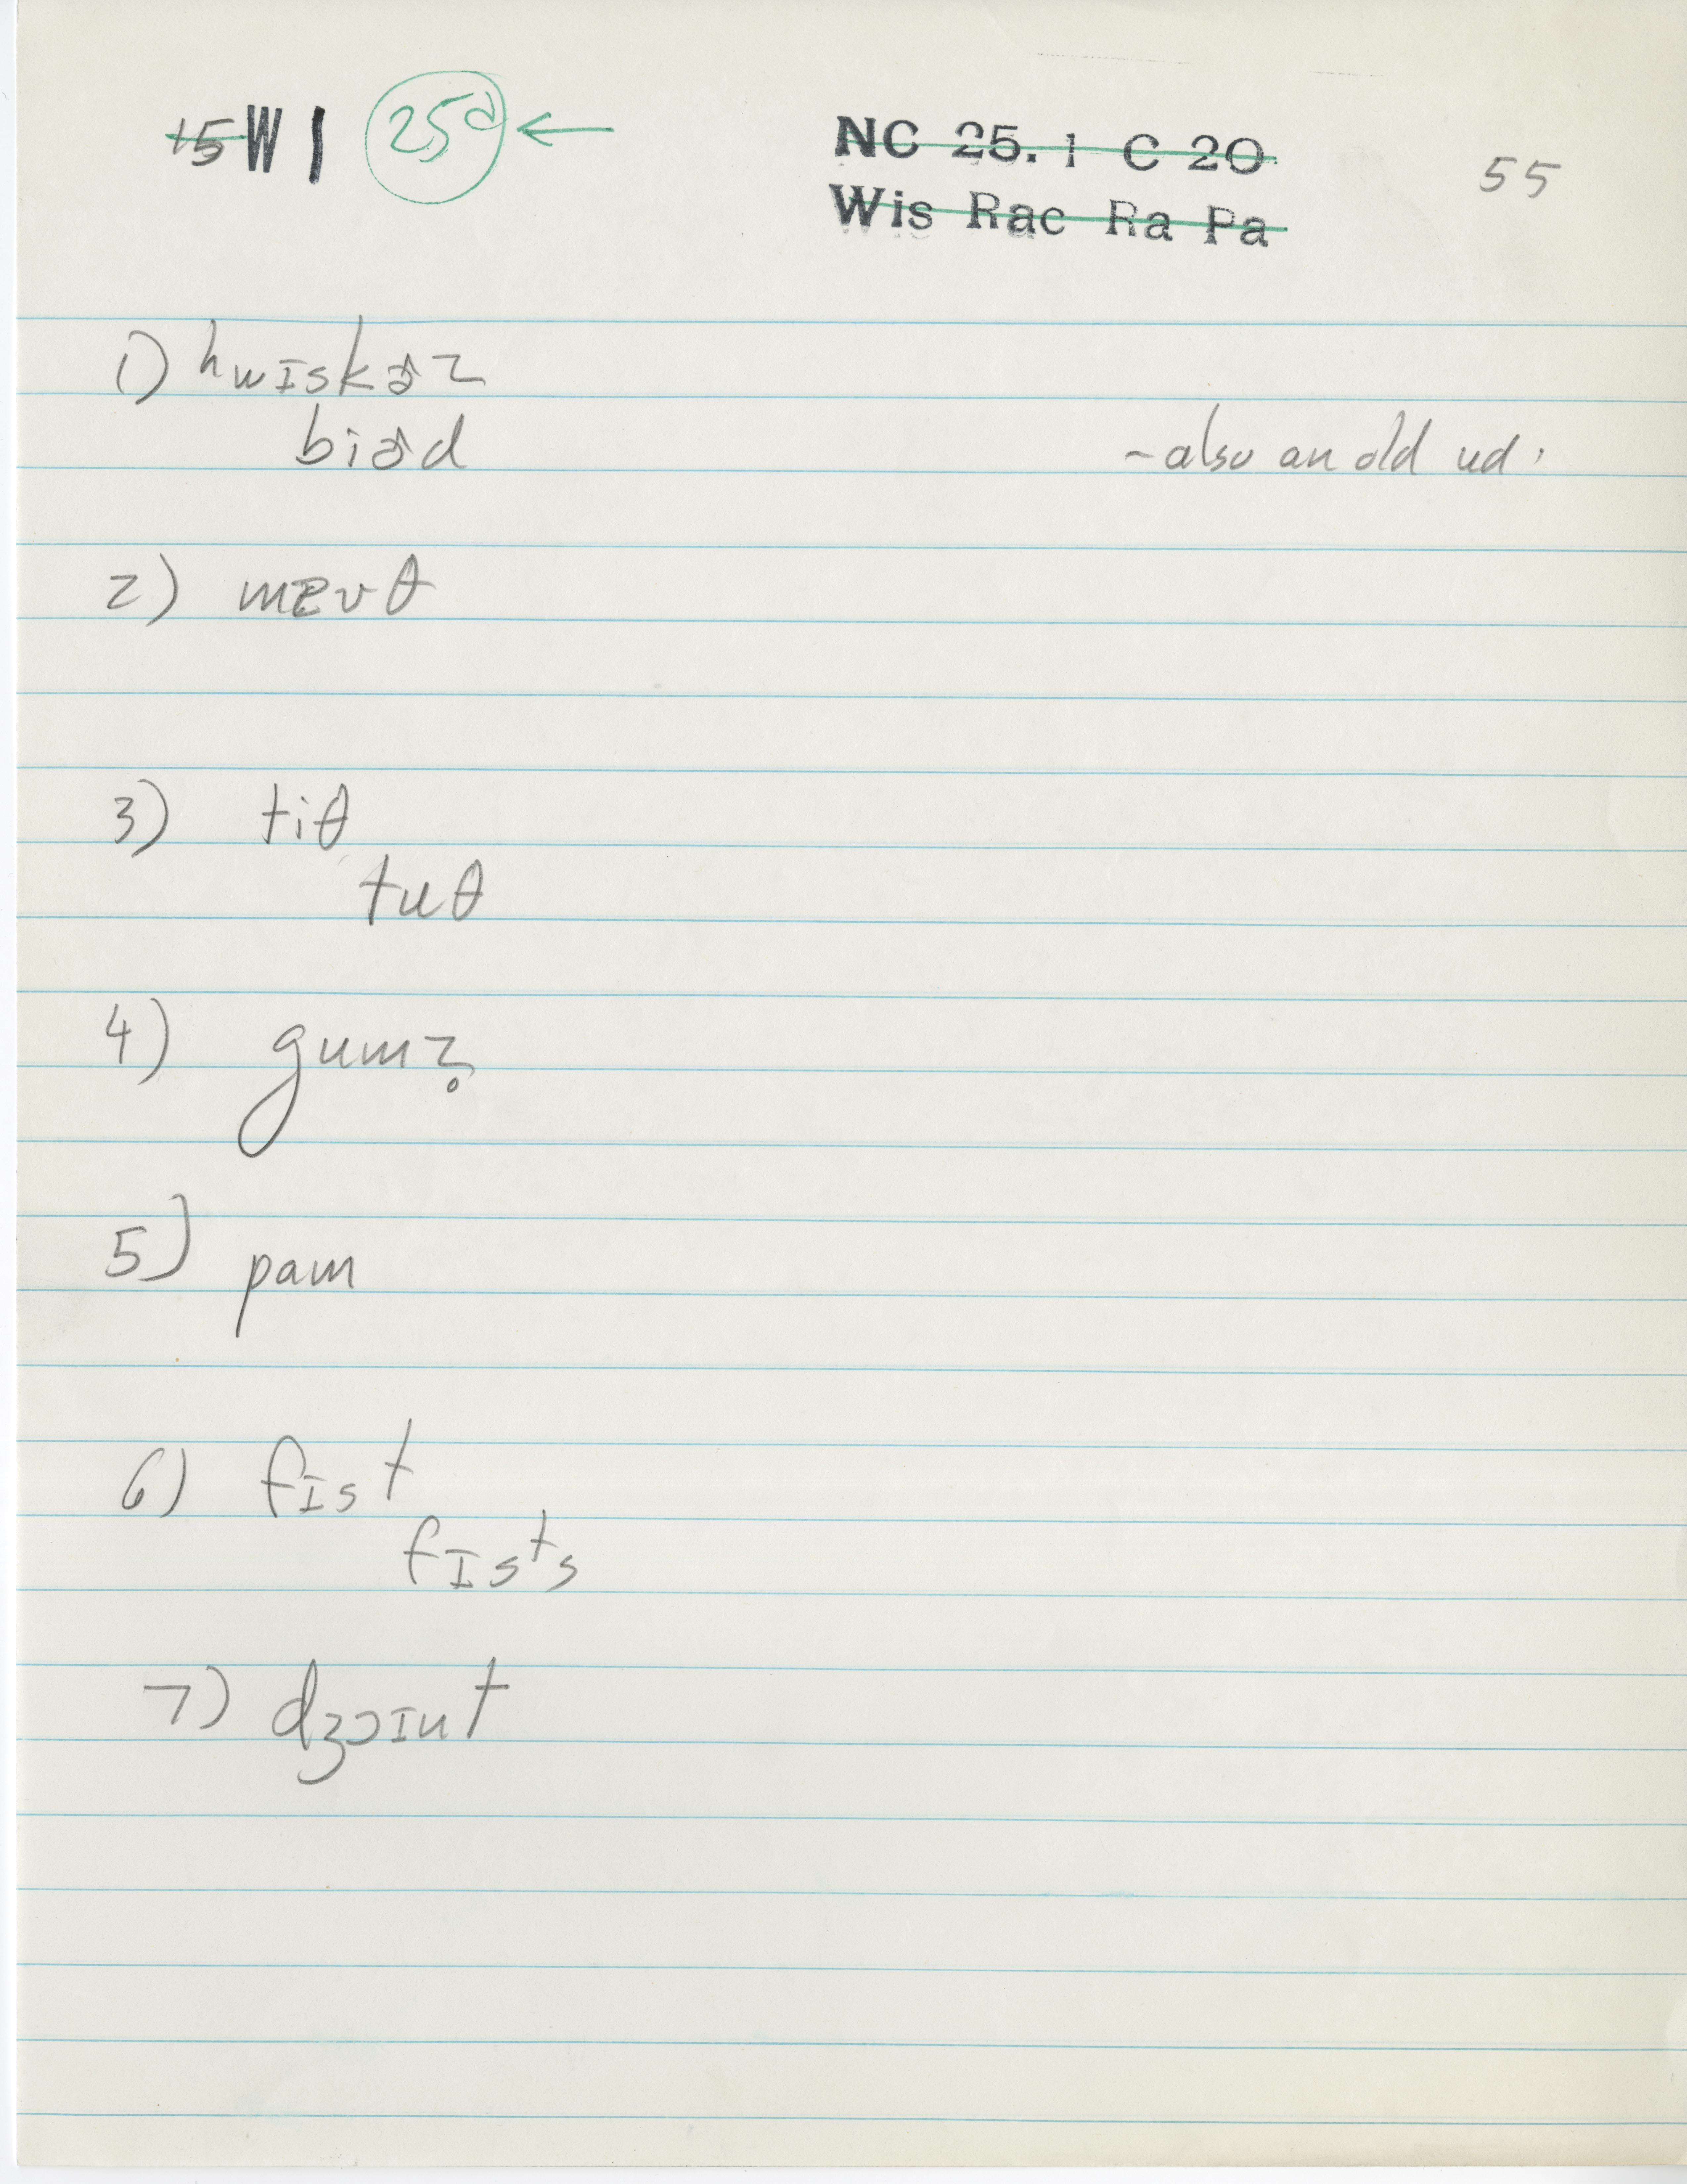 15 W I 25a ←
NC 25. 1 C 20.
Wis Rac Ra Pa
55
1) hwɪskɚz
biɚd
- also an old wd.
2) mɐʊθ
3) tiθ
tuθ
4) gumz̥
5) pam
6) fɪst
fɪsts
7) dʒɔɪnt